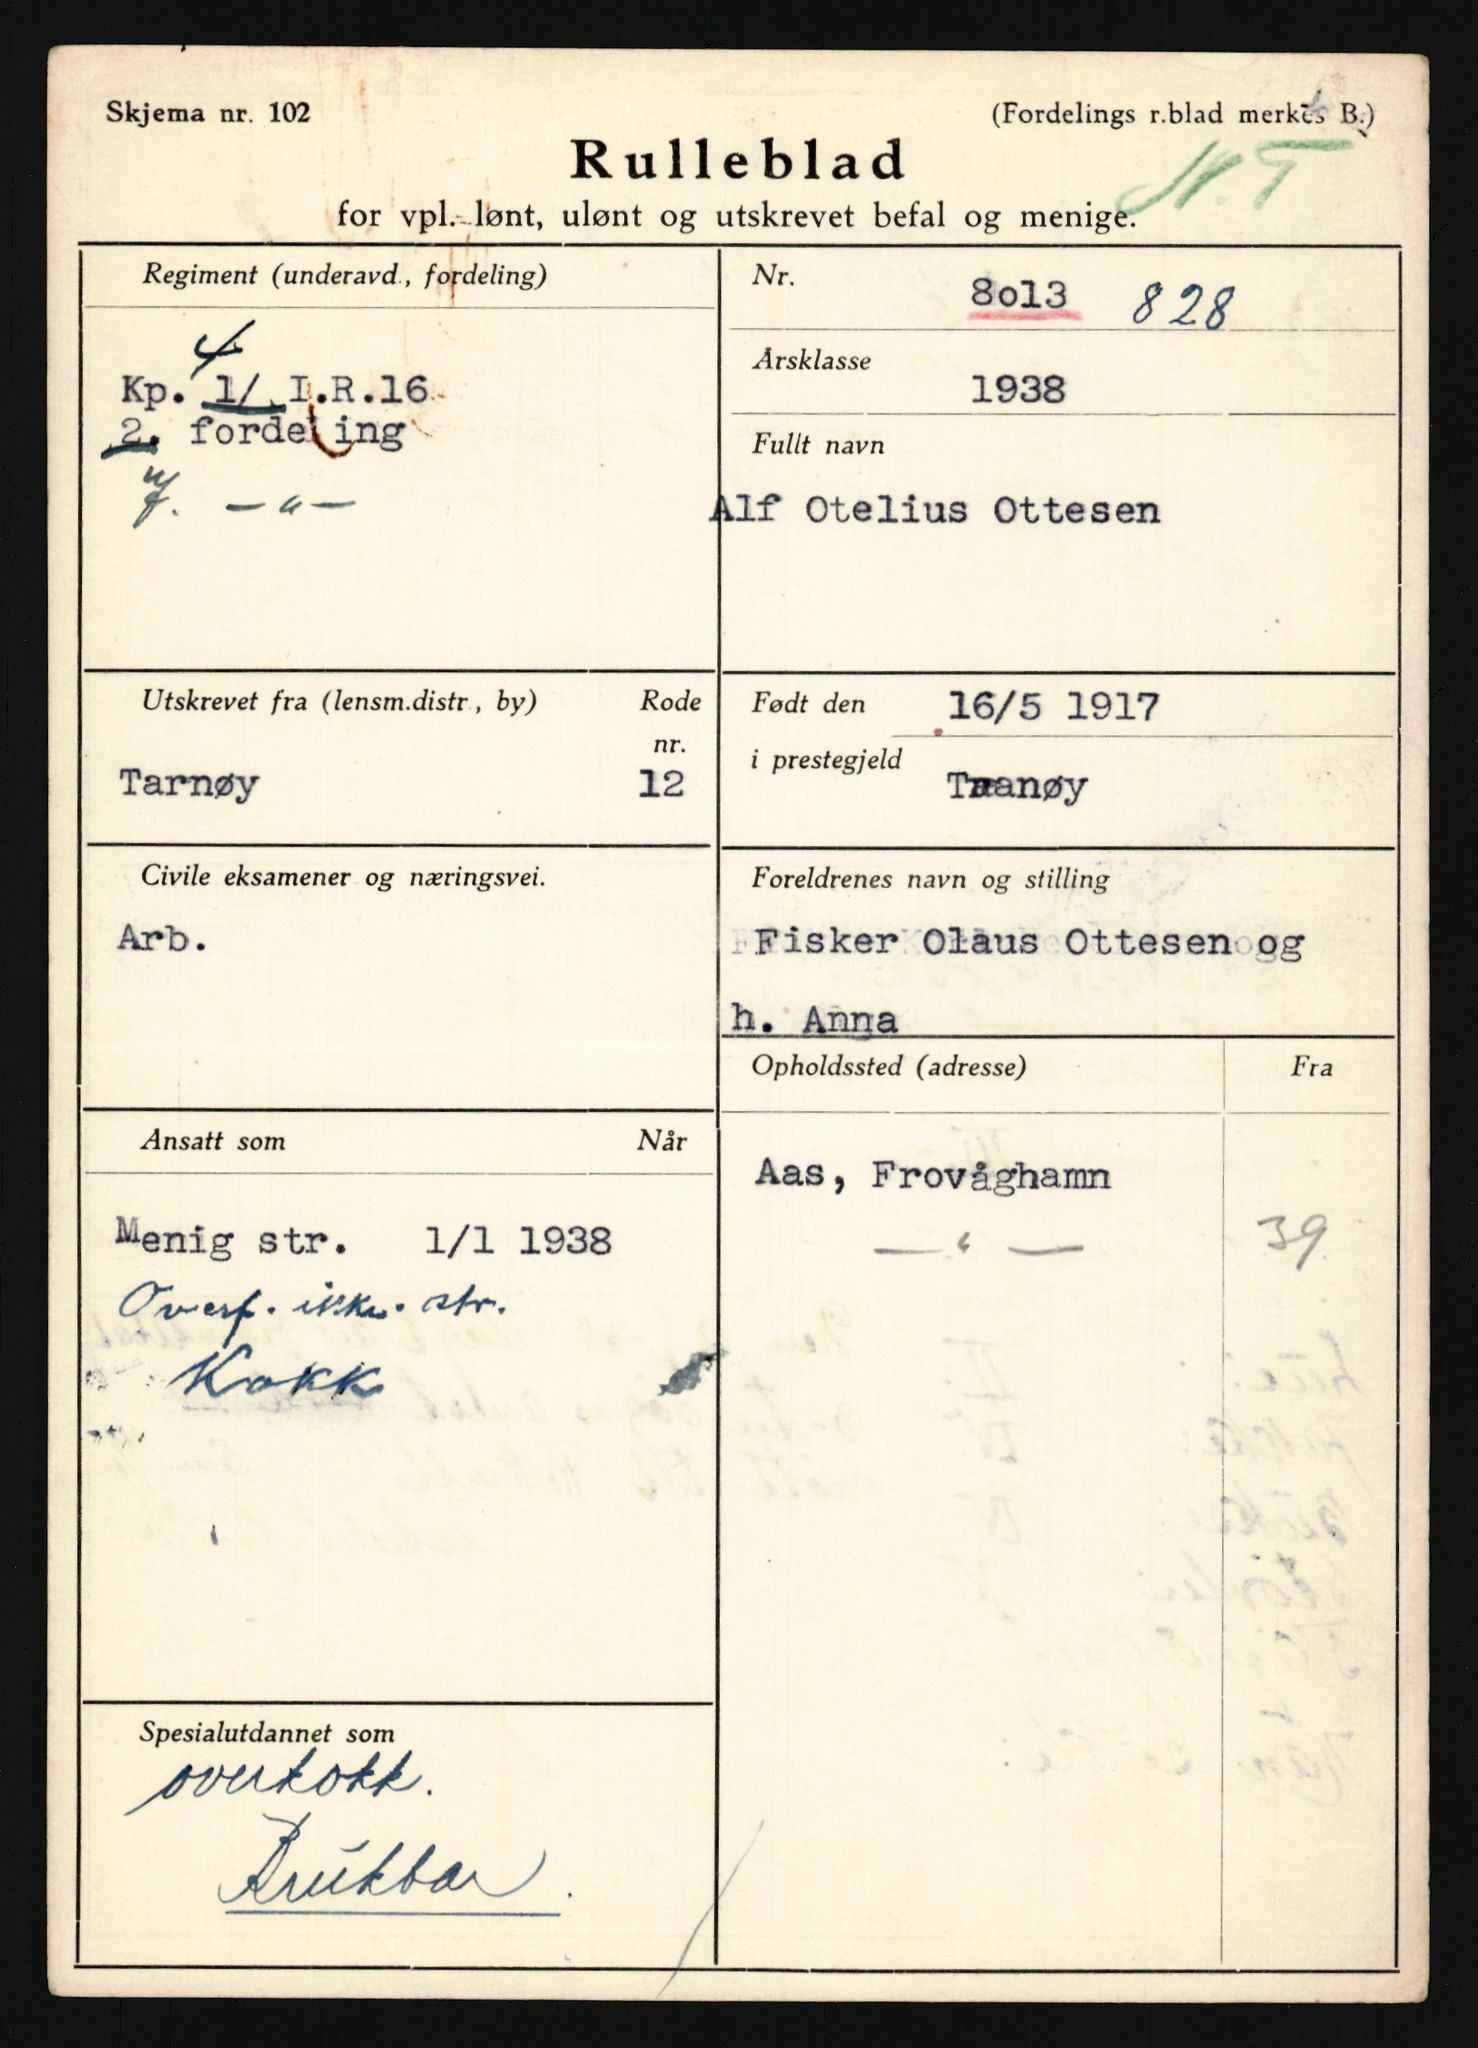 Skjema nr. 102
(Fordelings r.blad merkes B.)
Rulleblad
N.T
for vpl. lønt, ulønt og utskrevet befal og menige.
Regiment (underavd., fordeling)
4
Kp. 1/ I.R.16
2. fordeling
— " —
Nr.
8o13 828
Årsklasse
1938
Fullt navn
Alf Otelius Ottesen
Utskrevet fra (lensm.distr., by)
Rode
nr.
Tarnøy
12
Født den
16/5 1917
i prestegjeld
Tranøy
Civile eksamener og næringsvei.
Arb.
Foreldrenes navn og stilling
Fisker Olaus Ottesen og
h. Anna
Opholdssted (adresse)
Fra
Aas, Frovåghamn
— " — 39
Ansatt som
Når
Menig str. 1/1 1938
Overf. ikke. str.
Kokk
Spesialutdannet som
overkokk.
Brukbar.